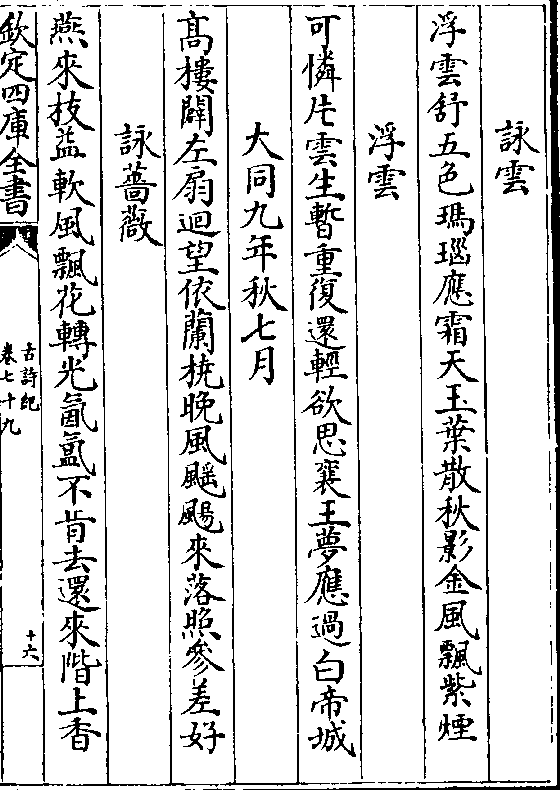 詠雲
浮雲舒五色瑪瑙應霜天玉葉散秋影金風飄紫煙
浮雲
可憐片雲生暫重復還輕欲思襄王夢應過白帝城
大同九年秋七月
髙樓闢左扇迴望依蘭橈晚風颻颺來落照參差好
詠薔薇
燕來枝益軟風飄花轉光氤氳不肯去還來階上香
欽定四庫全書
古詩紀
卷七十九
十六